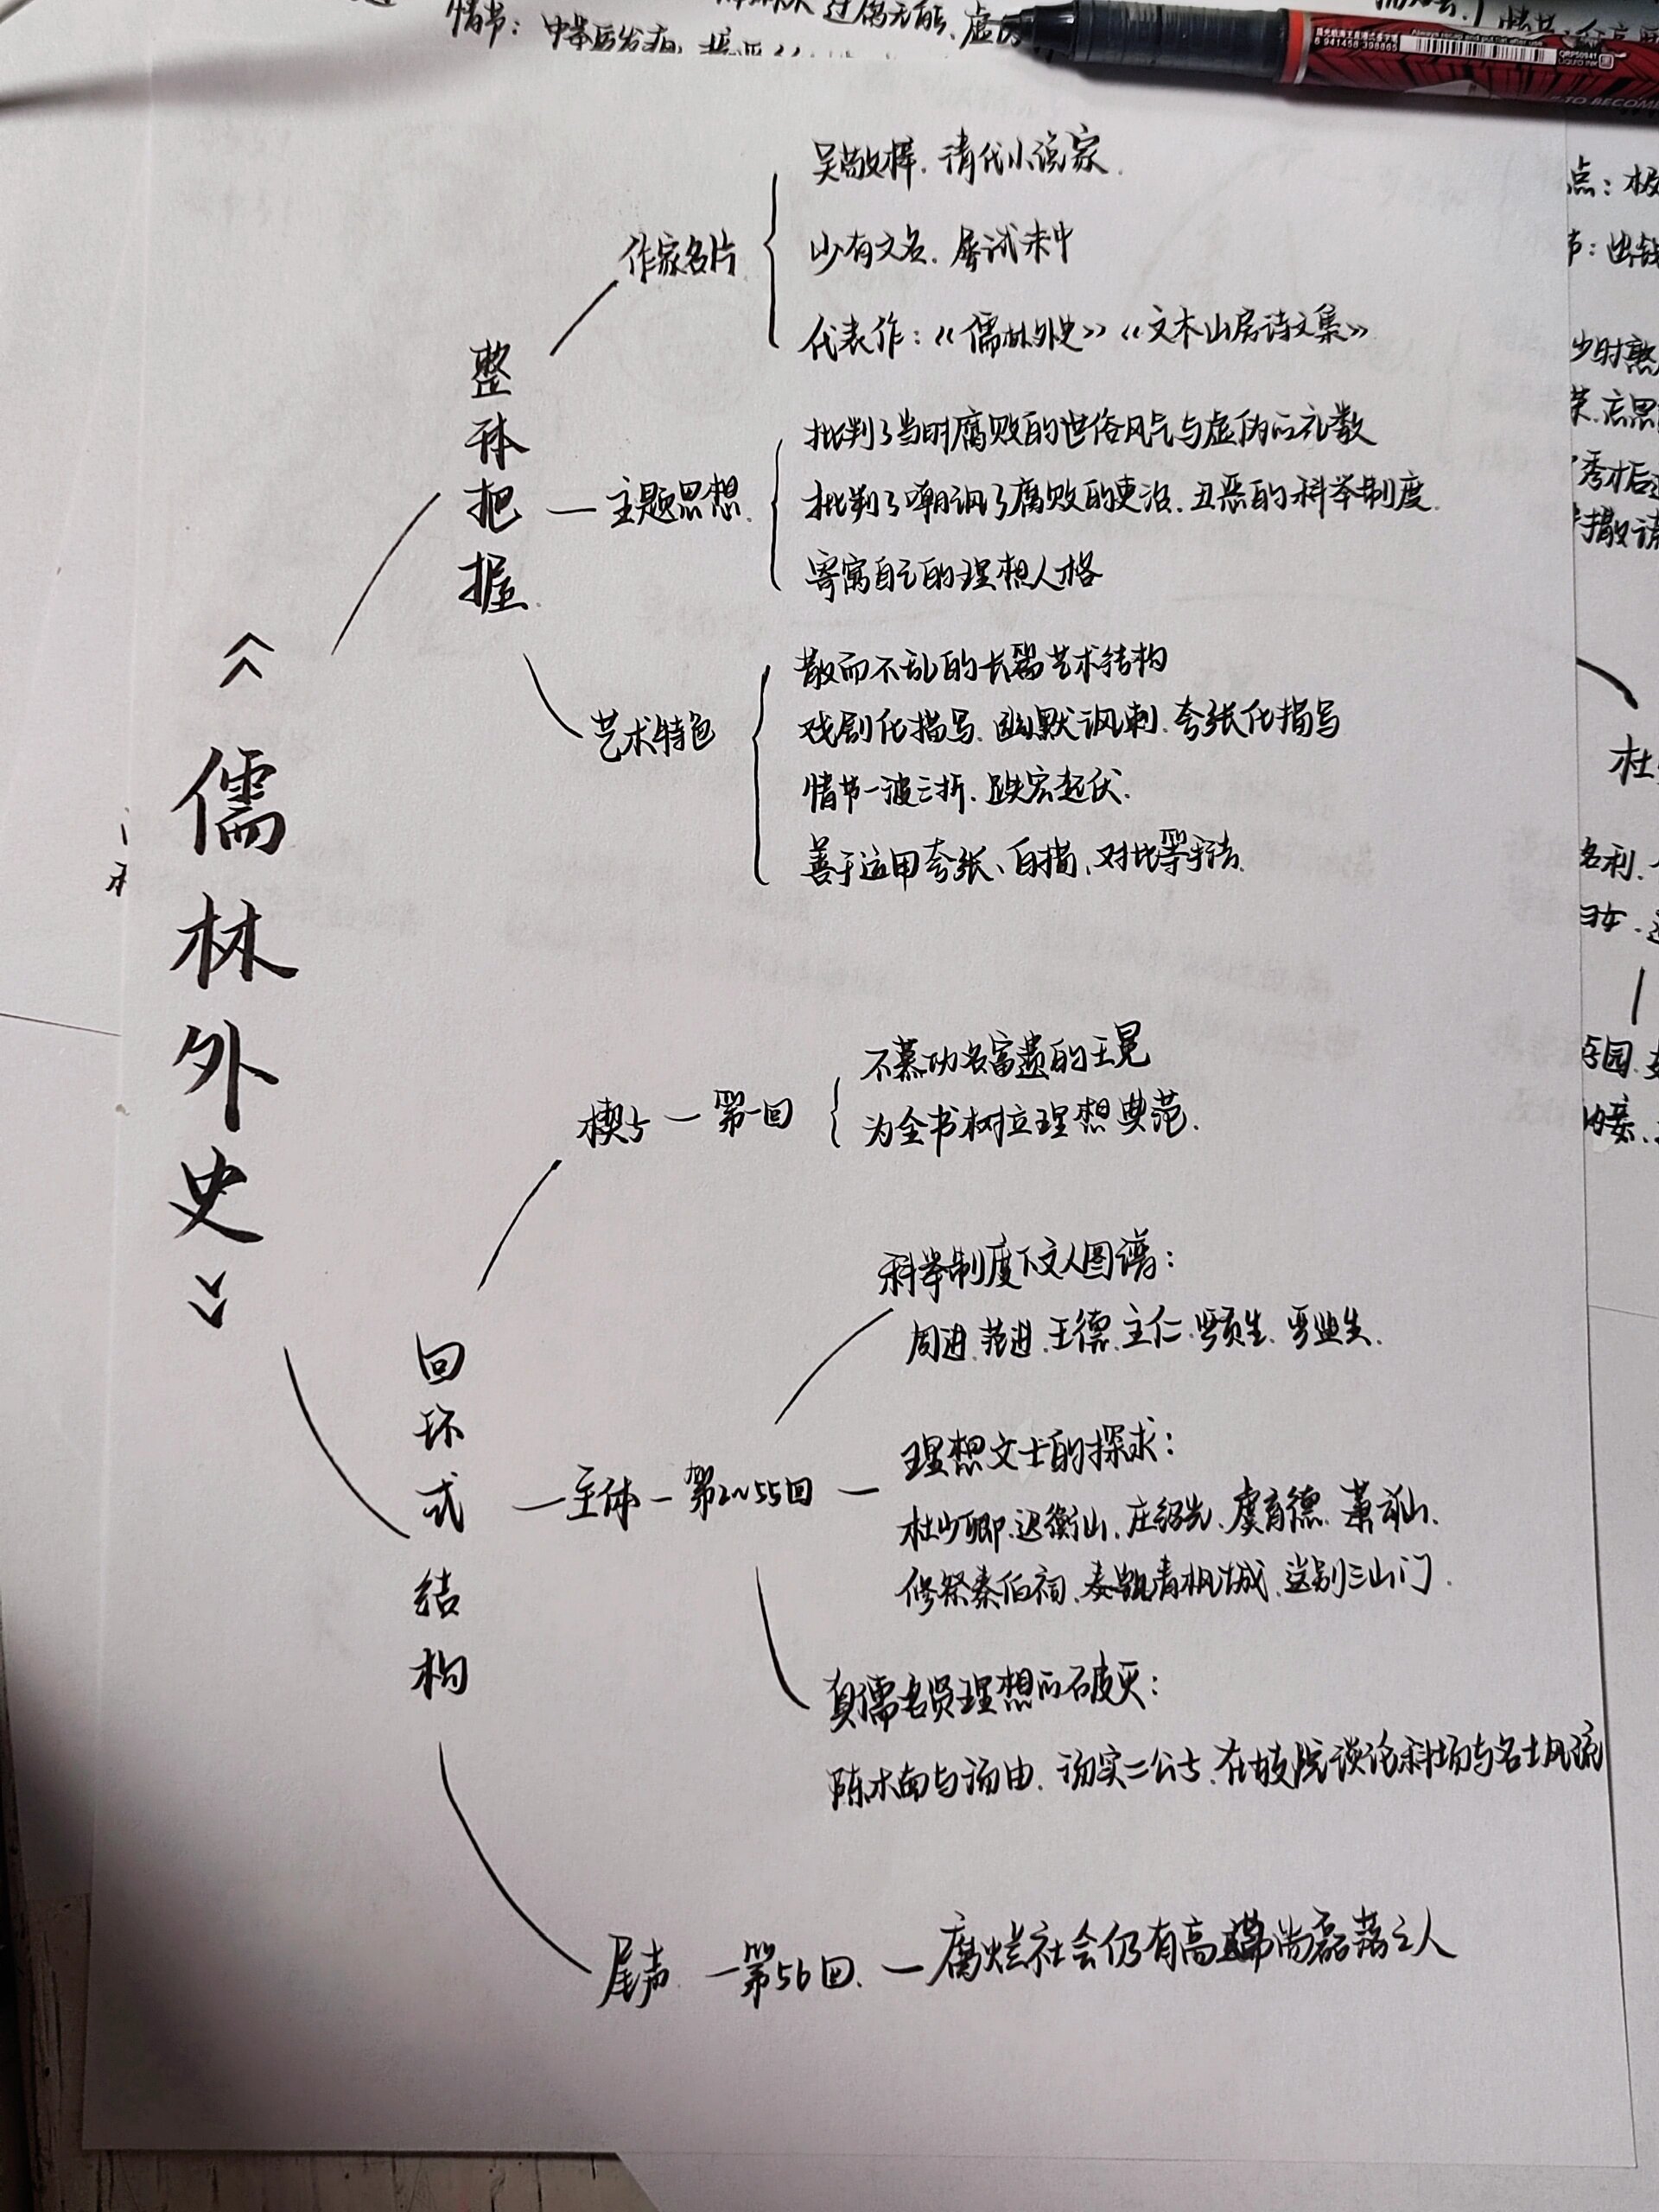 情节：中举后发疯
过腐无能、虚
6 941458 398665
Always recap and put tip end after use
LIQUID INK
TO BECOM
《儒林外史》
整体把握
作家名片
吴敬梓．清代小说家．
少有文名．屡试未中
代表作：《儒林外史》《文木山房诗文集》
主题思想
批判了当时腐败的世俗风气与虚伪的礼教
批判了嘲讽了腐败的吏治．丑恶的科举制度．
寄寓自己的理想人格
艺术特色
散而不乱的长篇艺术结构
戏剧化描写．幽默讽刺．夸张化描写
情节一波三折．跌宕起伏．
善于运用夸张、白描、对比等手法．
回环式结构
楔子 — 第一回
不慕功名富贵的王冕
为全书树立理想典范．
主体 — 第2~55回
科举制度下文人图谱：
周进．范进．王德．王仁．严贡生．严监生．
理想文士的探求：
杜少卿．迟衡山．庄绍光．虞育德．萧云仙．
修祭泰伯祠．奏凯青枫城．送别三山门．
真儒名贤理想的破灭：
陈木南与汤由．汤实二公子．在妓院谈论科场与名士风流
尾声 — 第56回．— 腐烂社会仍有高尚磊落之人
点：极
节：出钱
少时熟
秀才后
撒谎
杜
名利．
妇女．